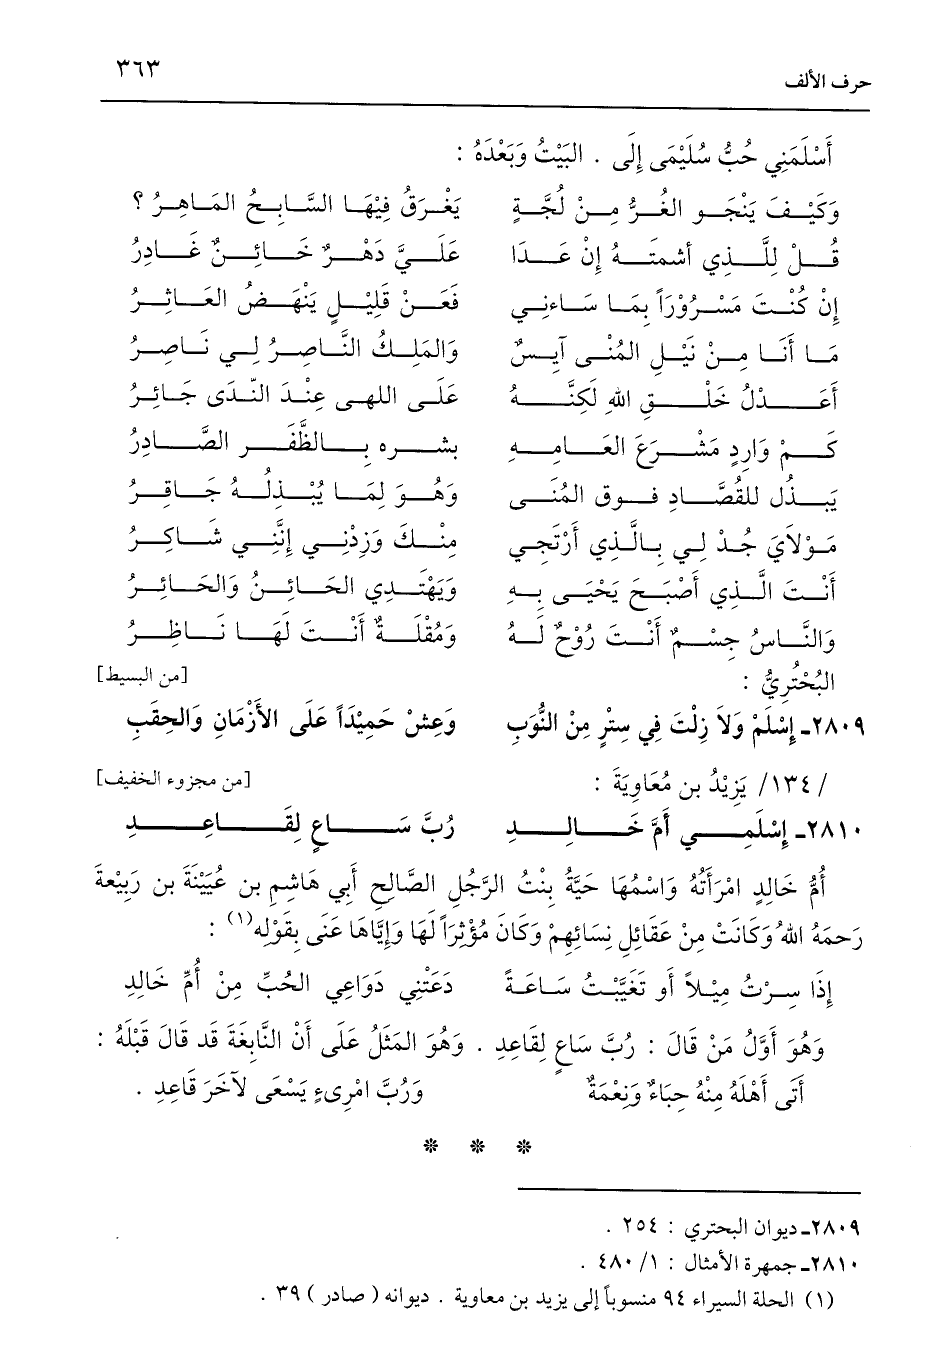 حرف الألف ٣٦٣
أَسْلَمَنِي حُبُّ سُلَيْمَى إِلَى . البَيْتُ وَبَعْدَهُ :
وَكَيْفَ يَنْجَو الغَرُّ مِنْ لُجَّةٍ يَغْرَقُ فِيْهَا السَّابِحُ المَاهِرُ ؟
قُلْ لِلَّذِي أشمتَهُ إِنْ عَدَا عَلَيَّ دَهْرٌ خَائِنٌ غَادِرُ
إِنْ كُنْتَ مَسْرُوْرَاً بِمَا سَاءَنِي فَعَنْ قَلِيْلٍ يَنْهَضُ العَاثِرُ
مَا أَنَا مِنْ نَيْلِ المُنَى آيِسٌ وَالمَلِكُ النَّاصِرُ لِي نَاصِرُ
أَعَدْلُ خَلْقِ اللهِ لَكِنَّهُ عَلَى اللهى عِنْدَ النَّدَى جَائِرُ
كَمْ وَارِدٍ مَشْرَعَ انعَامِهِ بشره بِالظَّفَرِ الصَّادِرُ
يَبذُل للقُصَّادِ فوق المُنَى وَهُوَ لِمَا يُبْذلهُ حَاقِرُ
مَوْلاَيَ جُدْ لِي بِالَّذِي أَرْتَجِي مِنْكَ وَزِدْنِي إِنَّنِي شَاكِرُ
أَنْتَ الَّذِي أَصْبَحَ يَحْيَى بِهِ وَيَهْتَدِي الحَائِنُ وَالحَائِرُ
وَالنَّاسُ جِسْمٌ أَنْتَ رُوْحٌ لَهُ وَمُقْلَةٌ أَنْتَ لَهَا نَاظِرُ
البُحْتُرِيُّ : [من البسيط]
٢٨٠٩ـ إِسْلَمْ وَلاَ زِلْتَ فِي سِتْرٍ مِنْ النُّوَبِ وَعِشْ حَمِيْدَاً عَلَى الأَزْمَانِ وَالحِقَبِ
/١٣٤/ يَزِيْدُ بن مُعَاوِيَةَ : [من مجزوء الخفيف]
٢٨١٠ـ إِسْلَمِي أُمَّ خَالِدِ رُبَّ سَاعٍ لِقَاعِدِ
أُمُّ خَالِدٍ امْرَأَتَهُ وَاسْمُهَا حَيَّةُ بِنْتُ الرَّجُلِ الصَّالِحِ أَبِي هَاشِمِ بن عُيَيْنَةَ بن رَبِيْعةَ
رَحمَهُ اللهُ وَكَانَتْ مِنْ عَقَائِلِ نِسَائِهِمْ وَكَانَ مُؤْثِرَاً لَهَا وَإِيَّاهَا عَنَى بِقَوْلِه(١) :
إِذَا سِرْتُ مِيْلاً أَو تَغَيَّبْتُ سَاعَةً دَعَتْنِي دَوَاعِي الحُبِّ مِنْ أُمِّ خَالِدِ
وَهُوَ أَوَّلُ مَنْ قَالَ : رُبَّ سَاعٍ لِقَاعِدِ . وَهُوَ المَثَلُ عَلَى أَنْ النَّابِغَةَ قَد قَالَ قَبْلَهُ :
أَتَى أَهْلَهُ مِنْهُ حِبَاءٌ وَنِعْمَةٌ وَرُبَّ امْرِىءٍ يَسْعَى لآخَرَ قَاعِدِ .
* * *
٢٨٠٩ـ ديوان البحتري : ٢٥٤ .
٢٨١٠ـ جمهرة الأمثال : ١/ ٤٨٠ .
(١) الحلة السيراء ٩٤ منسوباً إلى يزيد بن معاوية . ديوانه ( صادر ) ٣٩ .